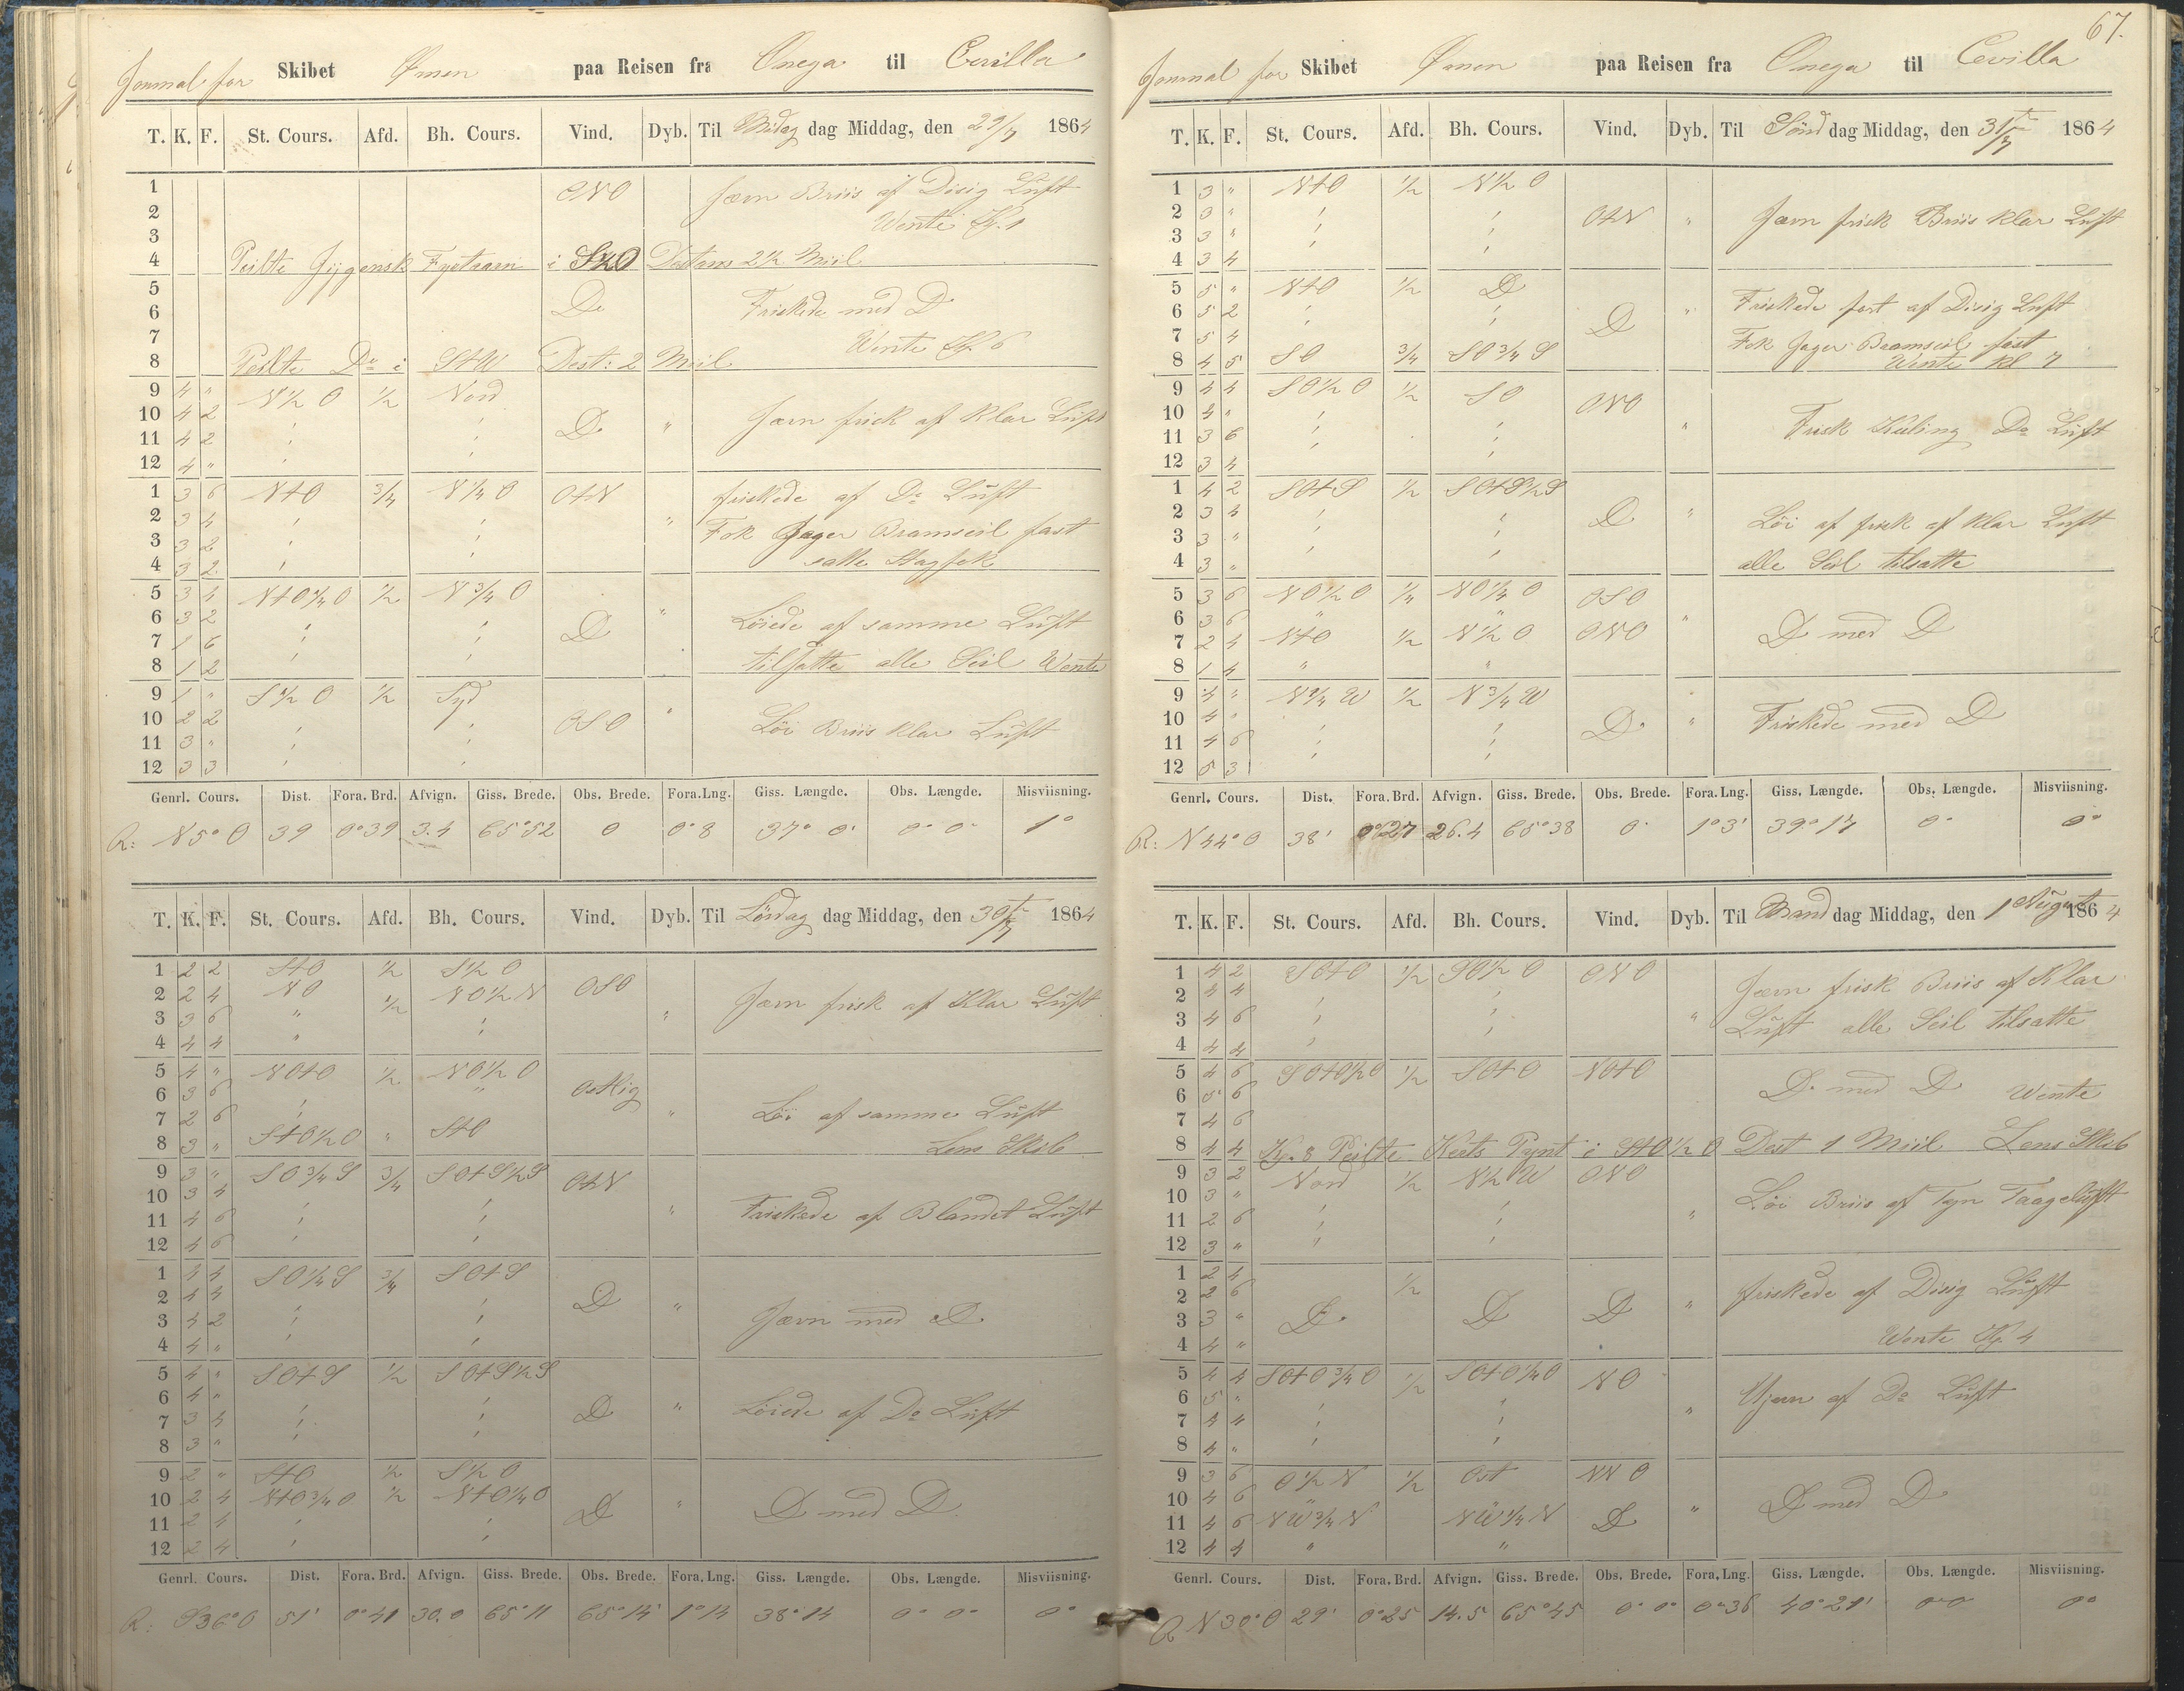 Journal for Skibet Ømen paa Reisen fra Onega til Cevilla
T. K. F. St. Cours. Afd. Bh. Cours. Vind. Dyb. Til dag Middag, den 29/7 1864
1 ONO Jævn Briis af Disig Luft
2 Wente Kl. 1
3
4 Peilte Fyrtaarn i Distans 2½ Miil
5
6 Do Friskede med D
7 Wente Kl 6
8 Peilte Do i StW Dist: 2 Miil
9 4 " N½ O ½ Nord
10 4 2 D " Jævn frisk af Klar Luft
11 4 2
12 4 "
1 3 6 NtO ¾ N¼ O OtN friskede af Do Luft
2 3 4 " Fok Jager Bramseil fast
3 3 2 satte Stagfok
4 3 2
5 3 4 NtO¼ O ½ N¾ O
6 3 2 D " Löiede af samme Luft
7 1 6
8 1 2 tilsatte alle Seil Wente
9 1 " S½ O ½ Syd
10 2 2 OSO " Löi Briis Klar Luft
11 3 "
12 3 3
Genrl. Cours. Dist. Fora. Brd. Afvign. Giss. Brede. Obs. Brede. Fora. Lng. Giss. Længde. Obs. Længde. Misviisning.
R: N5°O 39 0°39 3.4 65°52 0 0°8 37° 0' 0° 0' 1°
T. K. F. St. Cours. Afd. Bh. Cours. Vind. Dyb. Til Lördag dag Middag, den 30te/7 1864
1 2 2 StO ½ S½ O
2 2 4 NO ½ NO½N OSO Jævn frisk af Klar Luft
3 3 6 " "
4 4 4 "
5 4 " NOtO ½ NO½ O
6 3 6 " Ostlig
7 2 6 " Löi af samme Luft
8 3 " StO½O " StO Lens Skib
9 3 " SO¾S ¾ SOtS½S OtN
10 3 4
11 4 6 " Friskede af Blandet Luft
12 4 6
1 4 4 SO¼S ¾ SOtS
2 4 4 D "
3 4 2 Jævn med D
4 4 "
5 4 " SOtS ½ SOtS½S
6 4 "
7 3 4 D " Löiede af Do Luft
8 3 "
9 2 " StO ½ S½ O
10 2 4 NtO¾O ½ NtO¼O D " D med D
11 2 4
12 2 4
Genrl. Cours. Dist. Fora. Brd. Afvign. Giss. Brede. Obs. Brede. Fora. Lng. Giss. Længde. Obs. Længde. Misviisning.
R: S36°O 51' 0°41 30.0 65°11 65°14' 1°14 38°14 0° 0° 0°
67.
Journal for Skibet Ømen paa Reisen fra Onega til Cevilla
T. K. F. St. Cours. Afd. Bh. Cours. Vind. Dyb. Til Sönd dag Middag, den 31te/7 1864
1 3 " NtO ½ N½ O
2 3 " OtN " Jævn frisk Briis klar Luft
3 3 "
4 3 4
5 5 " NtO ½ D Friskede fort af Disig Luft
6 5 2 D "
7 5 4 Fok Jager Bramseil fast
8 4 5 SO ¾ SO¾ S Wente kl 7
9 4 4 SO½ O ½ SO
10 4 " ONO
11 3 6 " Frisk Kuling Do Luft
12 3 4
1 4 2 SOtS ½ SOtS½S
2 3 4 D " Löi af frisk af klar Luft
3 3 "
4 3 " alle Seil tilsatte
5 3 6 NO½ O ¼ NO¼ O OSO
6 3 6 " " "
7 2 4 NtO ½ N½ O ONO D med D
8 1 4 " "
9 4 " N¼ W ½ N¾ W
10 4 " D " Friskede med D
11 4 6
12 5 3
Genrl. Cours. Dist. Fora. Brd. Afvign. Giss. Brede. Obs. Brede. Fora. Lng. Giss. Længde. Obs. Længde. Misviisning.
R: N44°O 38' 0°27 26.4 65°38 0° 1°3' 39°17 0° 0°
T. K. F. St. Cours. Afd. Bh. Cours. Vind. Dyb. Til Mand dag Middag, den 1 August 1864
1 4 2 SOtO ½ SO½ O ONO
2 4 4 Jævn frisk Briis af Klar
3 4 6 " Luft alle Seil tilsatte
4 4 4
5 4 6 SOtO½O ½ SOtO NOtO
6 5 6 D med D Wente
7 4 6
8 4 4 Kl. 8 Peilte Pynt i StO½O Dist 1 Miil Lens Skib
9 3 2 Nord ½ N½ W ONO
10 3 " Löi Briis af Tyn Taageluft
11 2 6 "
12 3 "
1 2 4
2 2 6 ½ friskede af Disig Luft
3 3 " D D D "
4 4 " Wente Kl 4
5 4 4 SOtO¾O ½ SOtO¼O NO
6 5 " af Do Luft
7 4 4 "
8 4 "
9 3 6 O½ N ½ Ost NNO
10 4 6 D med D
11 4 6 NW¾N NW¼N D "
12 4 4 " "
Genrl. Cours. Dist. Fora. Brd. Afvign. Giss. Brede. Obs. Brede. Fora. Lng. Giss. Længde. Obs. Længde. Misviisning.
R N30°O 29' 0°25 14.5 65°45 0° 0° 0°36 40°21' 0°0 0°